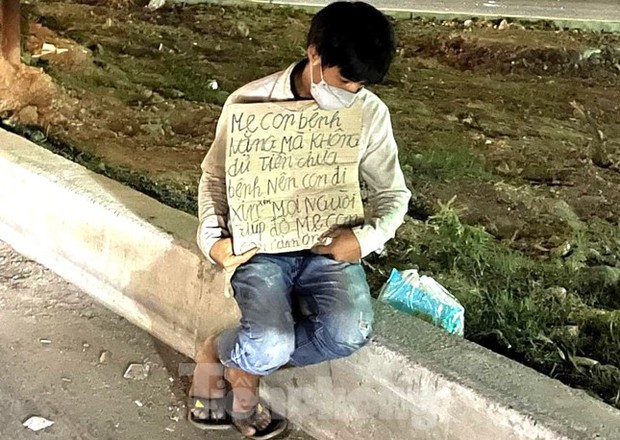 Mẹ con bệnh
Nặng Mà không
đủ Tiền chữa
bệnh Nên con đi
xin Mọi Người
giúp đỡ Mẹ con
con cảm ơn
Tiền phong